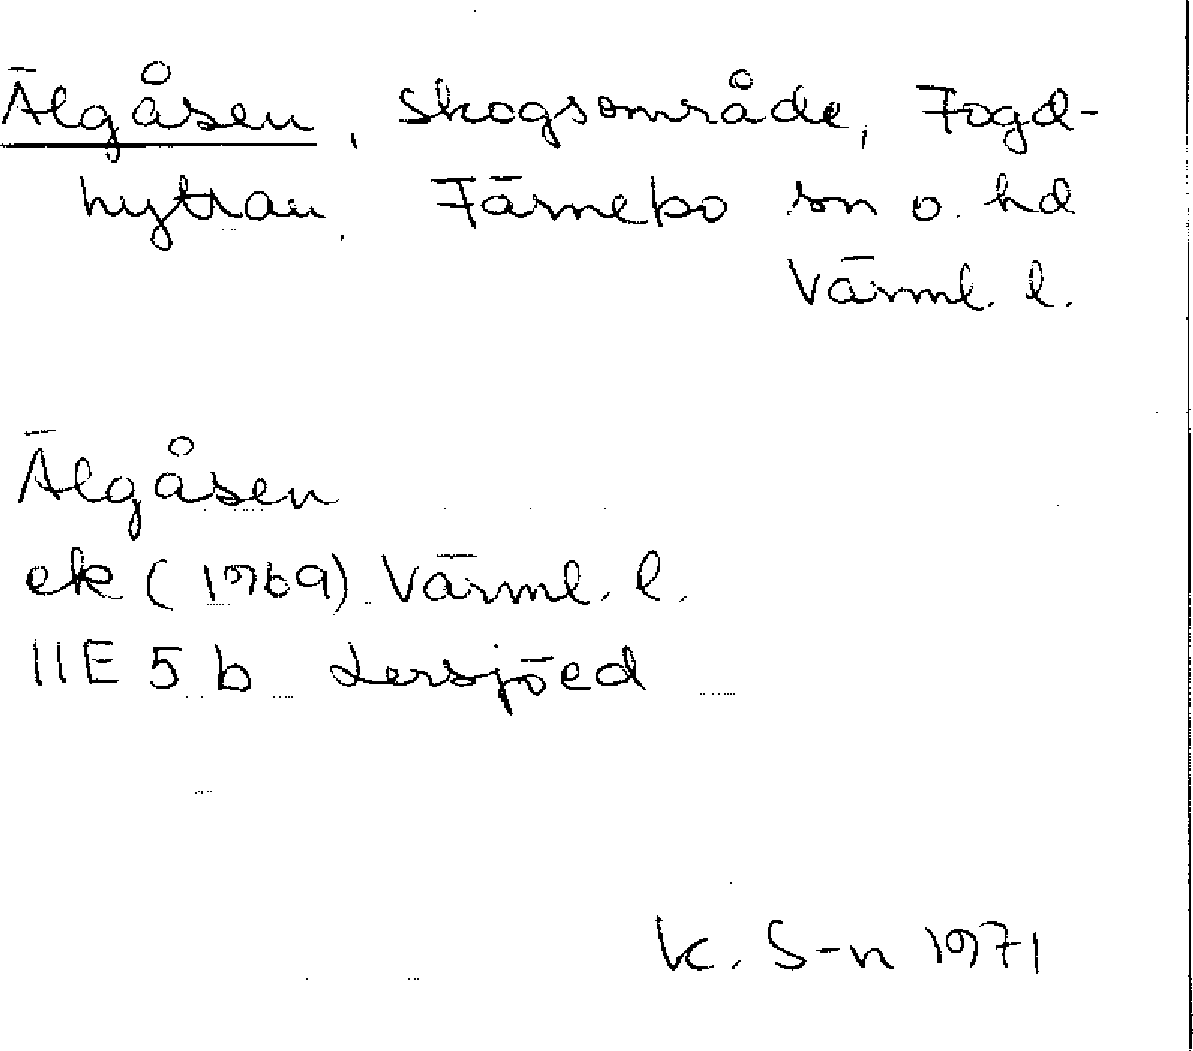 Älgåsen, skogsområde, Fogd-
hyttan. Färnebo sn o. hd
Värml. l.
Älgåsen
ek (1969). Värml. l.
11E 5 b Lersjöed
K. S-n 1971